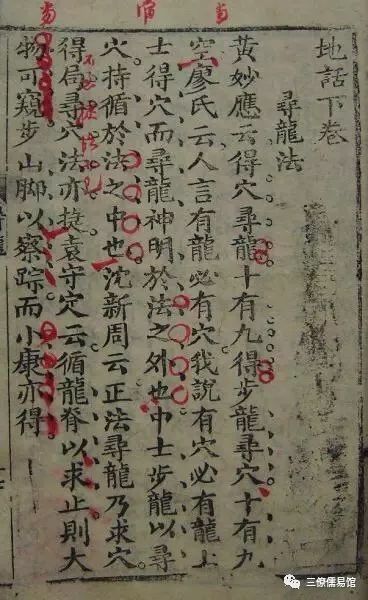 地話下卷
尋龍法
黃妙應云得穴尋龍十有九得步龍尋穴十有九
空廖氏云人言有龍必有穴我說有穴必有龍上
士得穴而尋龍神明於法之外也中士步龍以尋
穴持循於法之中也沈新周云正法尋龍乃求穴
得局尋穴法亦㨗袁守穴云循龍脊以求止則大
物可窺步山脚以察踪而小康亦得
三僚儒易馆